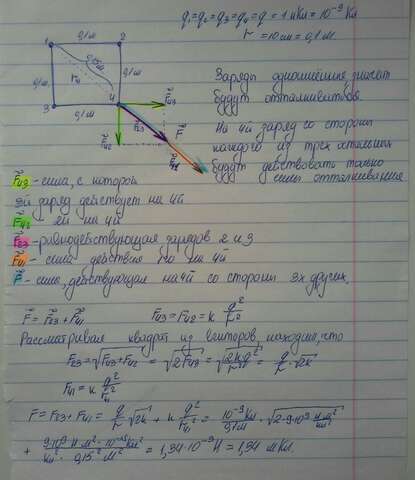 q₁=q₂=q₃=q₄=q=1нКл=10⁻⁹Кл
r=10см=0,1м
1
2
0,1м
0,1м
0,15м
0,1м
r₄₁
3
0,1м
4
F₄₃
F₂₃
F₄₂
F
F₄₁
Заряды одноимённые, значит
будут отталкиваться.
На 4й заряд со стороны
каждого из трех остальных
будут действовать только
силы отталкивания
F₄₃ - сила, с которой
3й заряд действует на 4й
F₄₂ - 2й на 4й
F₂₃ - равнодействующая зарядов 2 и 3
F₄₁ - сила действия 1го на 4й
F - сила, действующая на 4й со стороны 3х других.
F = F₂₃ + F₄₁ F₄₃ = F₄₂ = к q²/r²
Рассматривая квадрат из векторов, находим, что
F₂₃ = √F₄₃+F₄₂ = √2F₄₃ = √2кq²/r² = q/r √2к
F₄₁ = к q²/r₄₁²
F = F₂₃ + F₄₁ = q/r √2к + к q²/r₄₁² = 10⁻⁹Кл/0,1м · √2·9·10⁹ Н·м²/Кл² +
+ 9·10⁹ Н м² · 10⁻¹⁸Кл²/Кл² · 0,15² м² = 1,34·10⁻³Н = 1,34 мКл.